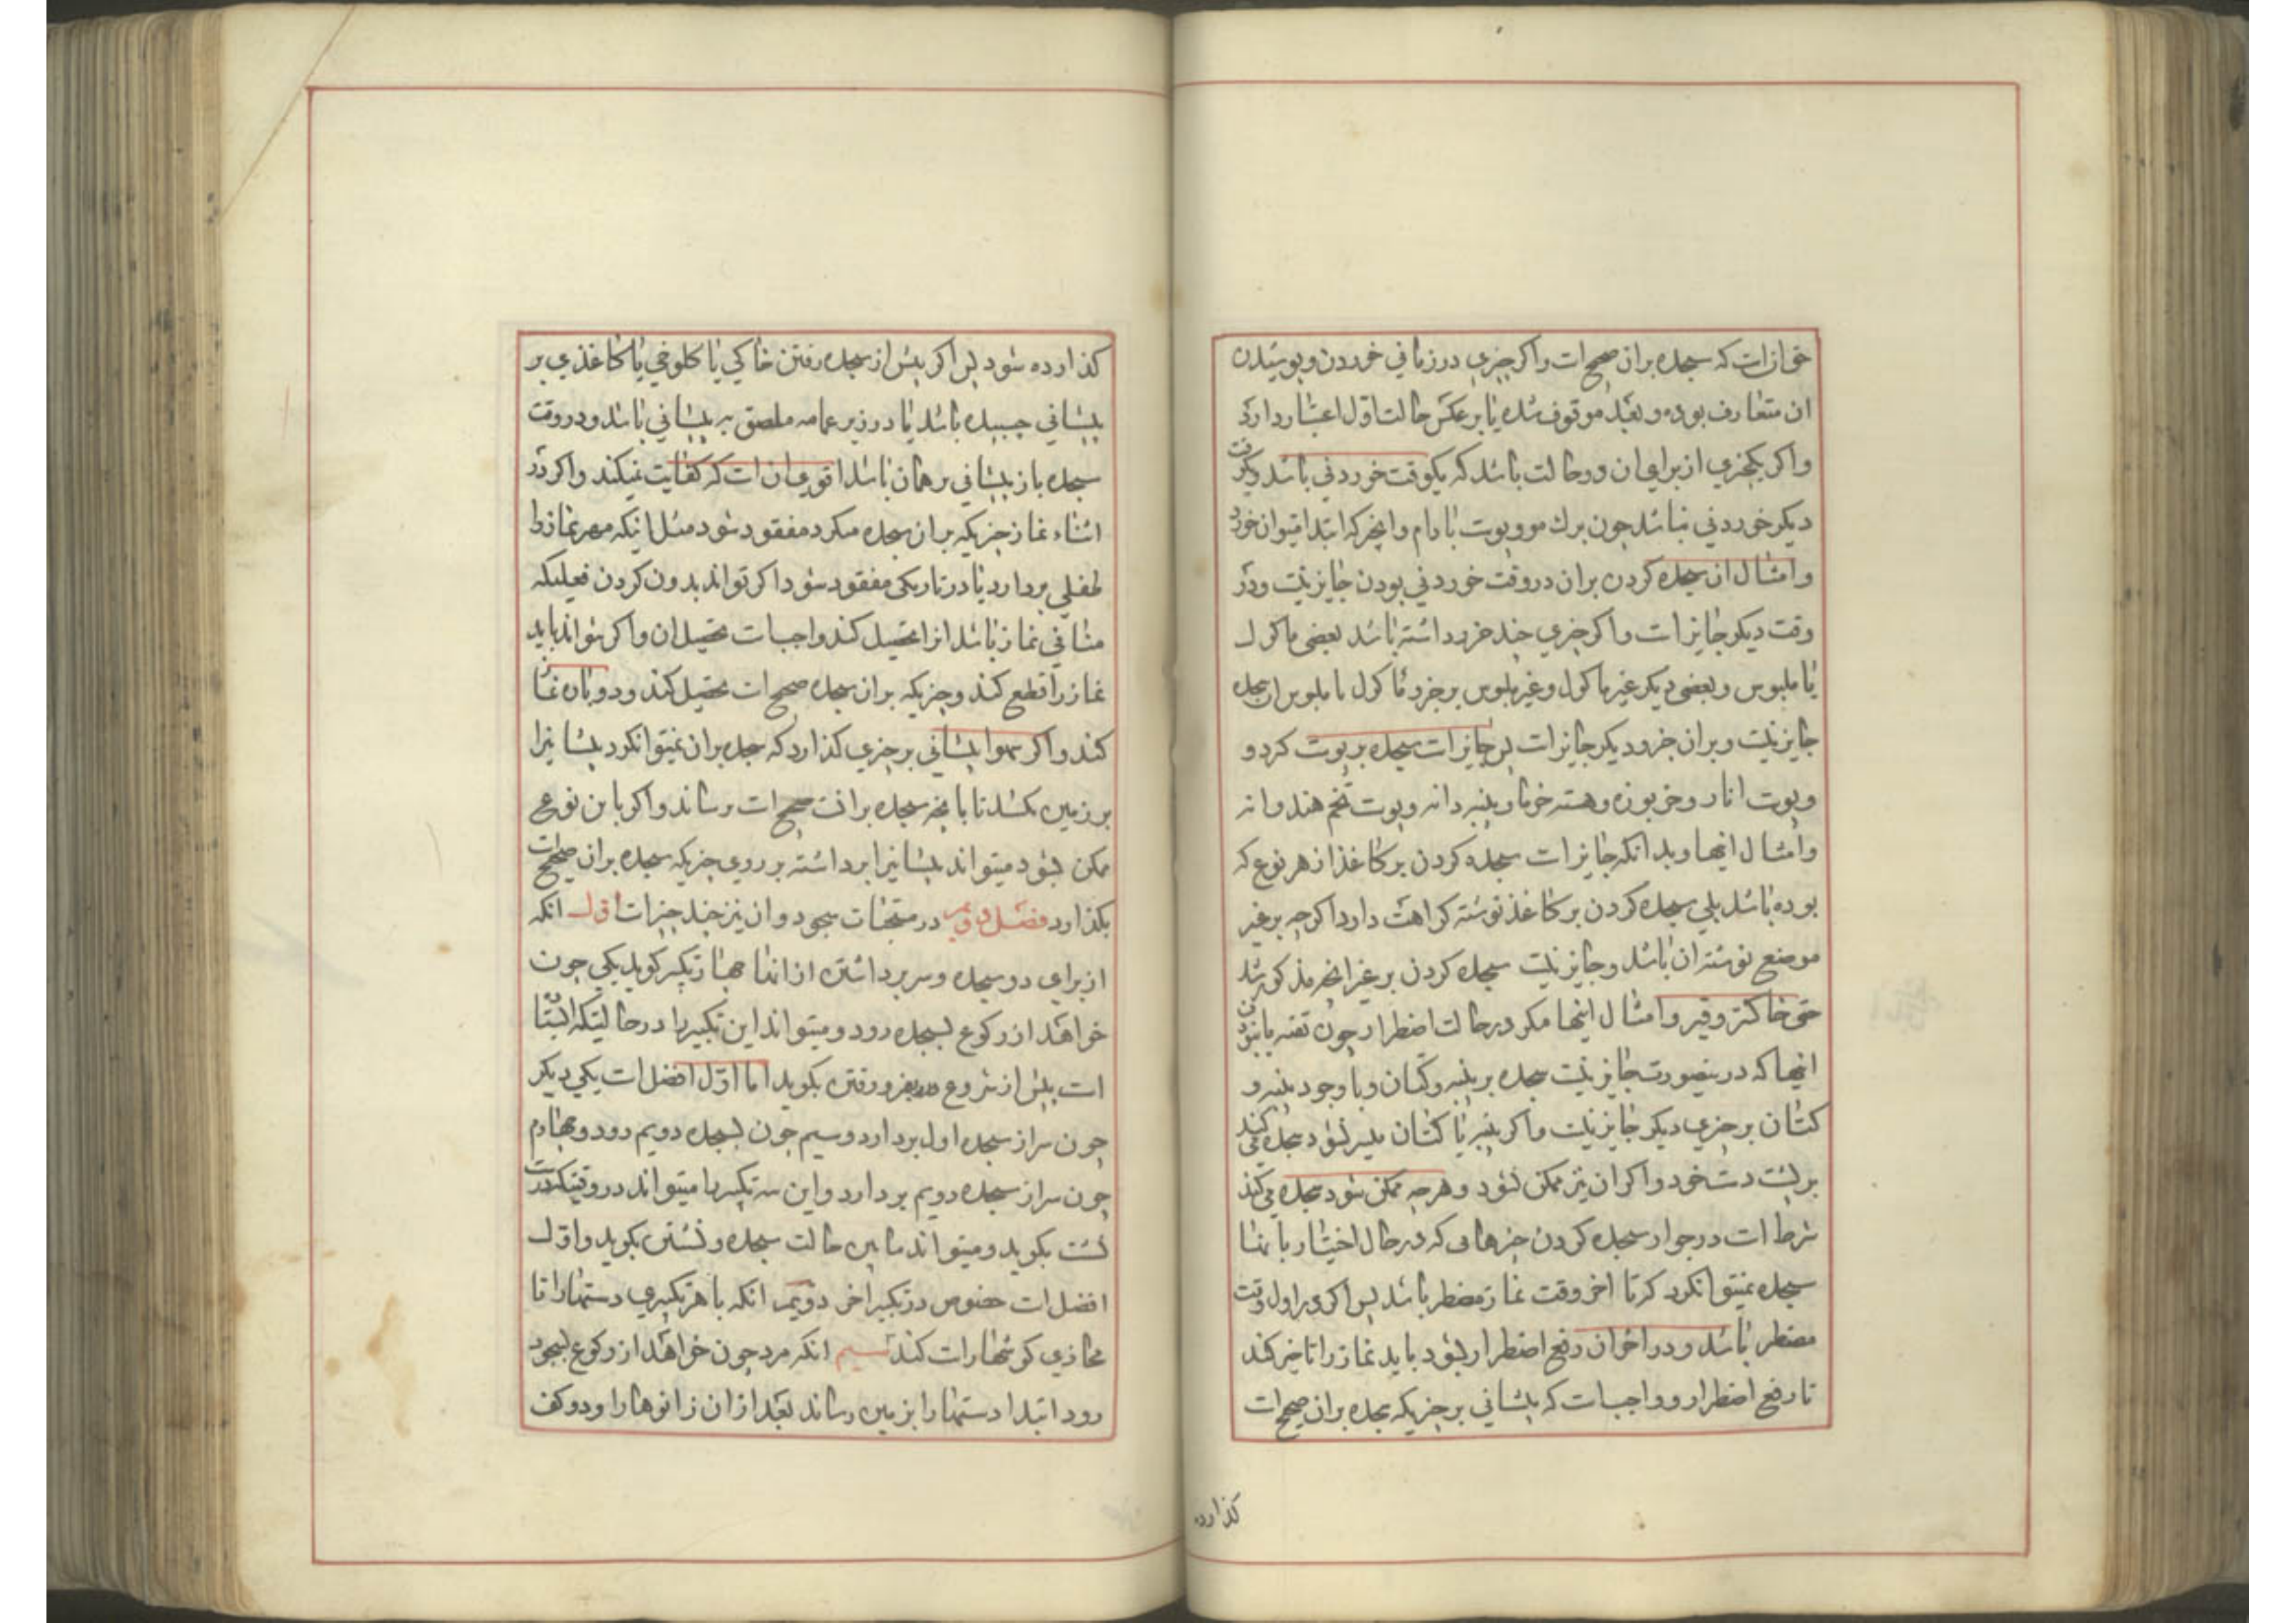 خوازات که سجده بران صحیح ات واکر چیزی در زمانی خوردن و پوسیدن
ان متعارف بوده و بعد موقوف شده یا بر عکس حالت اول اعتبار دارد
واکر یکچیزی از برای ان دو حالت باشد که یکوقت خوردنی باشد و یکوقت
دیکر خوردنی نباشد چون برك مو و پوست بادام وانچه که ابتدا میتوان خورد
وامثال ان سجده کردن بران در وقت خوردنی بودن جایز نیت ودر
وقت دیکر جایز ات واکر چیزی چند جزء داشته باشد بعضی ماکول
یا ملبوس و بعضی دیکر غیر ماکول و غیر ملبوس بر جزء ماکول یا ملبوس ان سجده
جایز نیت و بران جزو دیکر جایز ات پس جایز ات سجده بر پوت کردو
و پوت انار و خربوزه و هسته خرما و پنبه دانه و پوت تخم هندوانه
وامثال اینها و بدانکه جایز ات سجده کردن بر کاغذ از هر نوع که
بوده باشد بلی سجده کردن بر کاغذ نوشته کراهت دارد اکرچه بر غیر
موضع نوشته ان باشد و جایز نیت سجده کردن بر غیر انچه مذکور شد
حتی خاکستر و قیر و امثال اینها مکر در حالت اضطرار چون تقیه یا نبودن
اینها که در ینصورت جایز نیت سجده بر پنبه و کتان و با وجود پنبه و
کتان بر چیزی دیکر جایز نیت واکر پنبه یا کتان میسر نشود سجده می کند
بر پشت دست خود واکر ان نیز ممکن نشود و هر چه ممکن شود سجده می کند
شرط ات در جواز سجده کردن چیزهائی که در حال اختیار بانها
سجده نمیتوانکرد که تا اخر وقت نماز مضطر باشد پس اکر در اول وقت
مضطر باشد و در اخر ان رفع اضطرار بشود باید نماز را تاخیر کند
تا رفع اضطرار و واجبات که پیشانی بر چیزیکه سجده بران صحیح ات
کذارده
کذارده شود پس اکر پیش از سجده رفتن خاکی یا کلوخی یا کاغذی بر
پیشانی چسبیده باشد یا در زیر عمامه ملصق به پیشانی باشد و در وقت
سجده باز پیشانی بر همان باشد اقوی ان ات که کفایت نمیکند واکر در
اثناء نماز چیزیکه بران سجده میکرد مفقود شود مثل اینکه مهر نماز را
طفلی بردارد یا در تاریکی مفقود شود اکر تواند بدون کردن فعلیکه
منافی نماز باشد انرا تحصیل کند واجبات تحصیل ان واکر نتواند باید
نماز را قطع کند و چیزیکه بران سجده صحیح ات تحصیل کند و دوباره نماز
کند واکر سهوا پیشانی بر چیزی کذارد که سجده بران نمیتوانکرد پیشانیرا
بر زمین بکشد تا بانچه سجده برانت صحیح ات رساند واکر باین نوع
ممکن نشود میتواند پیشانیرا برداشته بر روی چیزیکه سجده بران صحیح ات
بکذارد فصل دویم در مستحبات سجود وان نیز چند چیز ات اول انکه
از برای دو سجده و سر برداشتن از انها چهار تکبیر کوید یکی چون
خواهد از رکوع بسجده رود و میتواند این تکبیر را در حالتیکه ایستاده
ات پیش از شروع بفرو رفتن بکوید اما اول افضل ات یکی دیکر
چون سر از سجده اول بردارد و سیم چون بسجده دویم رود و چهارم
چون سر از سجده دویم بردارد و این سه تکبیر را میتواند در وقتیکه درست
نشت بکوید و میتواند مابین حالت سجده و نشستن بکوید و اول
افضل ات خصوص در تکبیر اخر دویم انکه با هر تکبیری دستها را تا
محاذی کوشها رات کند سیم انکه مرد چون خواهد از رکوع بسجود
رود ابتدا دستها را بزمین رساند بعد از ان زانوها را و دو کف